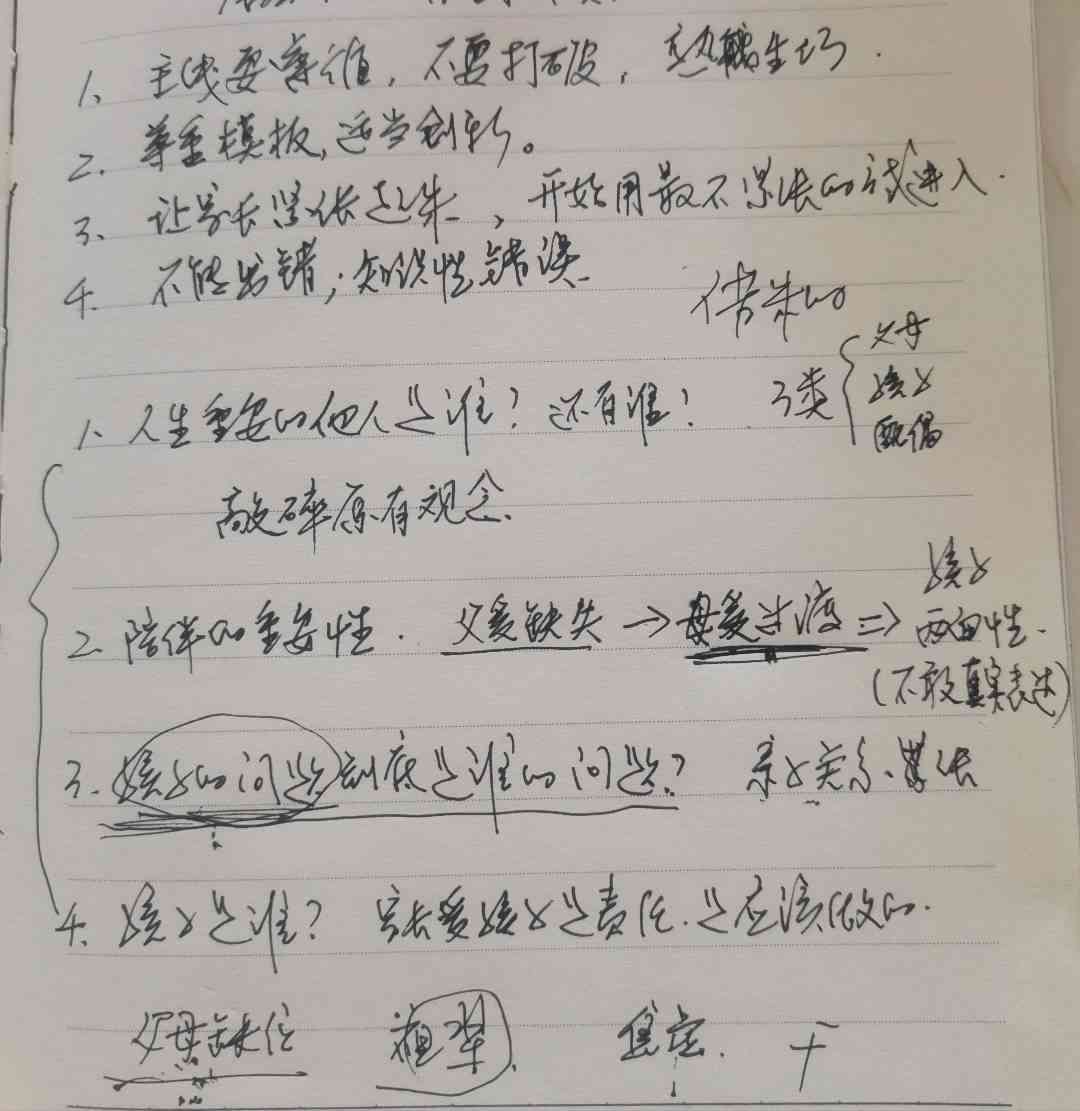 1、主线要尊重，不要打破，熟能生巧.
2. 尊重模板,适当创新。
3、让家长紧张起来，开始用最不紧张的方式进入.
4. 不能出错，知识性错误.
1、人生重要的他人是谁？还有谁？ 3类 { 父母
孩子
配偶
敲碎原有观念、
2. 陪伴的重要性. 父爱缺失 → 母爱过度 => 孩子
两面性.
(不敢真实表达)
3. 孩子的问题到底是谁的问题？ 亲子关系、紧张
4. 孩子是谁？ 家长爱孩子是责任.是应该做的.
父母缺位